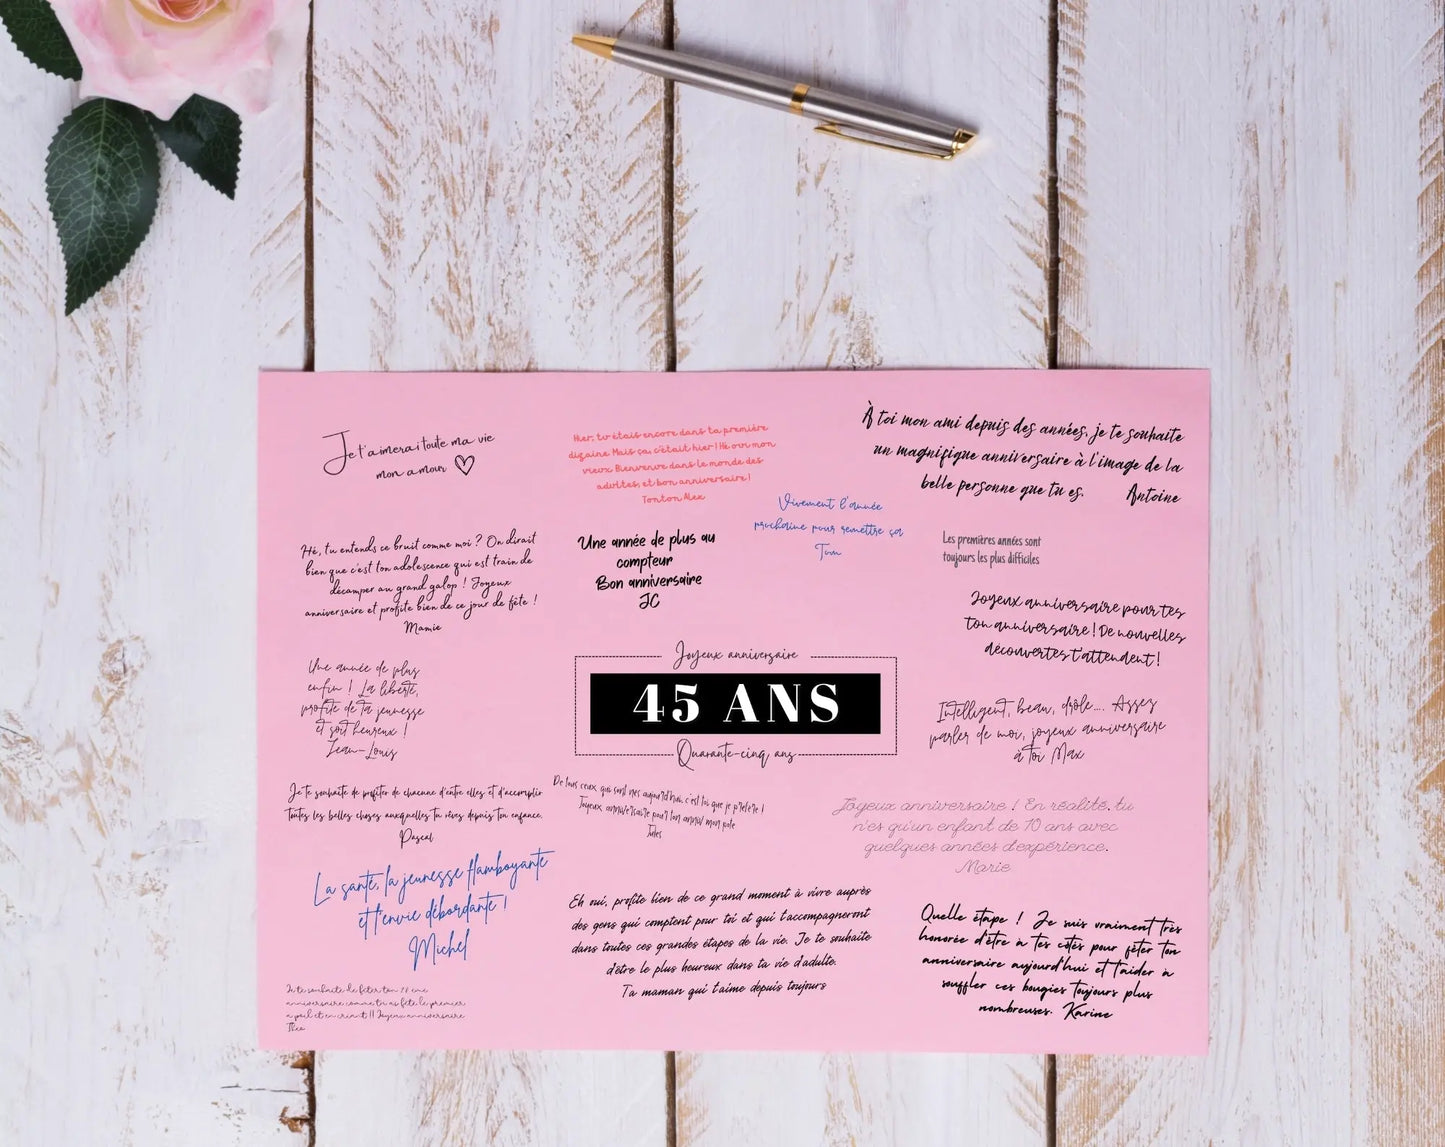 Je t'aimerai toute ma vie
mon amour
Hier, tu étais encore dans ta première
dizaine. Mais ça, c'était hier ! Hé oui mon
vieux. Bienvenue dans le monde des
adultes, et bon anniversaire !
Tonton Alex
À toi mon ami depuis des années, je te souhaite
un magnifique anniversaire à l'image de la
belle personne que tu es. Antoine
Vivement l'année
prochaine pour remettre ça
Tom
Hé, tu entends ce bruit comme moi ? On dirait
bien que c'est ton adolescence qui est train de
décamper au grand galop ! Joyeux
anniversaire et profite bien de ce jour de fête !
Mamie
Une année de plus au
compteur
Bon anniversaire
JC
Les premières années sont
toujours les plus difficiles
Joyeux anniversaire pour tes
ton anniversaire ! De nouvelles
découvertes t'attendent !
Une année de plus
enfin ! La liberté,
profite de ta jeunesse
et soit heureux !
Jean-Louis
Joyeux anniversaire
45 ANS
Quarante-cinq ans
Intelligent, beau, drôle.... Assez
parler de moi, joyeux anniversaire
à toi Max
Je te souhaite de profiter de chacune d'entre elles et d'accomplir
toutes les belles choses auxquelles tu rêves depuis ton enfance.
Pascal
De tous ceux qui sont nés aujourd'hui, c'est toi que je préfère !
Joyeux anniversaire pour ton anniv mon pote
Jules
Joyeux anniversaire ! En réalité, tu
n'es qu'un enfant de 10 ans avec
quelques années d'expérience.
Marie
La santé, la jeunesse flamboyante
et l'envie débordante !
Michel
Eh oui, profite bien de ce grand moment à vivre auprès
des gens qui comptent pour toi et qui t'accompagneront
dans toutes ces grandes étapes de la vie. Je te souhaite
d'être le plus heureux dans ta vie d'adulte.
Ta maman qui t'aime depuis toujours
Quelle étape ! Je suis vraiment très
honorée d'être à tes côtés pour fêter ton
anniversaire aujourd'hui et t'aider à
souffler ces bougies toujours plus
nombreuses. Karine
Je te souhaite de fêter ton ème
anniversaire comme tu as fêté le premier
a poil et en criant !! Joyeux anniversaire
Théo